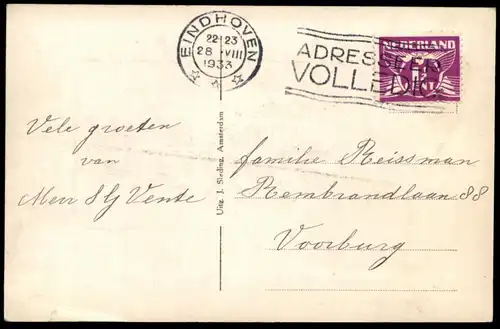 EINDHOVEN
22-23
28 VIII
1933
ADRESSEER
VOLLEDIG
NEDERLAND
Vele groeten
van
Mevr S G Vente
Uitg. J. Sleding, Amsterdam
familie Reissman
Rembrandlaan 88
Voorburg